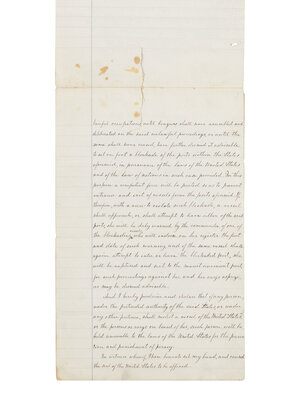 lawful occupations, until Congress shall have assembled and
deliberated on the said unlawful proceedings, or until the
same shall have ceased, have further deemed it advisable
to set on foot a blockade of the ports within the States
aforesaid, in pursuance of the laws of the United States
and of the law of nations in such case provided. For this
purpose a competent force will be posted so as to prevent
entrance and exit of vessels from the ports aforesaid. If
therefore, with a view to violate such blockade, a vessel
shall approach, or shall attempt to leave either of the said
ports, she will be duly warned by the commander of one of
the blockading who will endorse on her register the fact
and date of such warning and if the same vessel shall
again attempt to enter or leave the blockaded port, she
will be captured and sent to the nearest convenient port,
for such proceedings against her and her cargo as prize,
as may be deemed advisable.
And I hereby proclaim and declare that if any person,
under the pretended authority of the said States, or under
any other pretense, shall molest a vessel of the United States,
or the persons or cargo on board of her, such person will be
held amenable to the laws of the United States for the preven
tion and punishment of piracy.
In witness whereof, I have hereunto set my hand, and caused
the seal of the United States to be affixed.